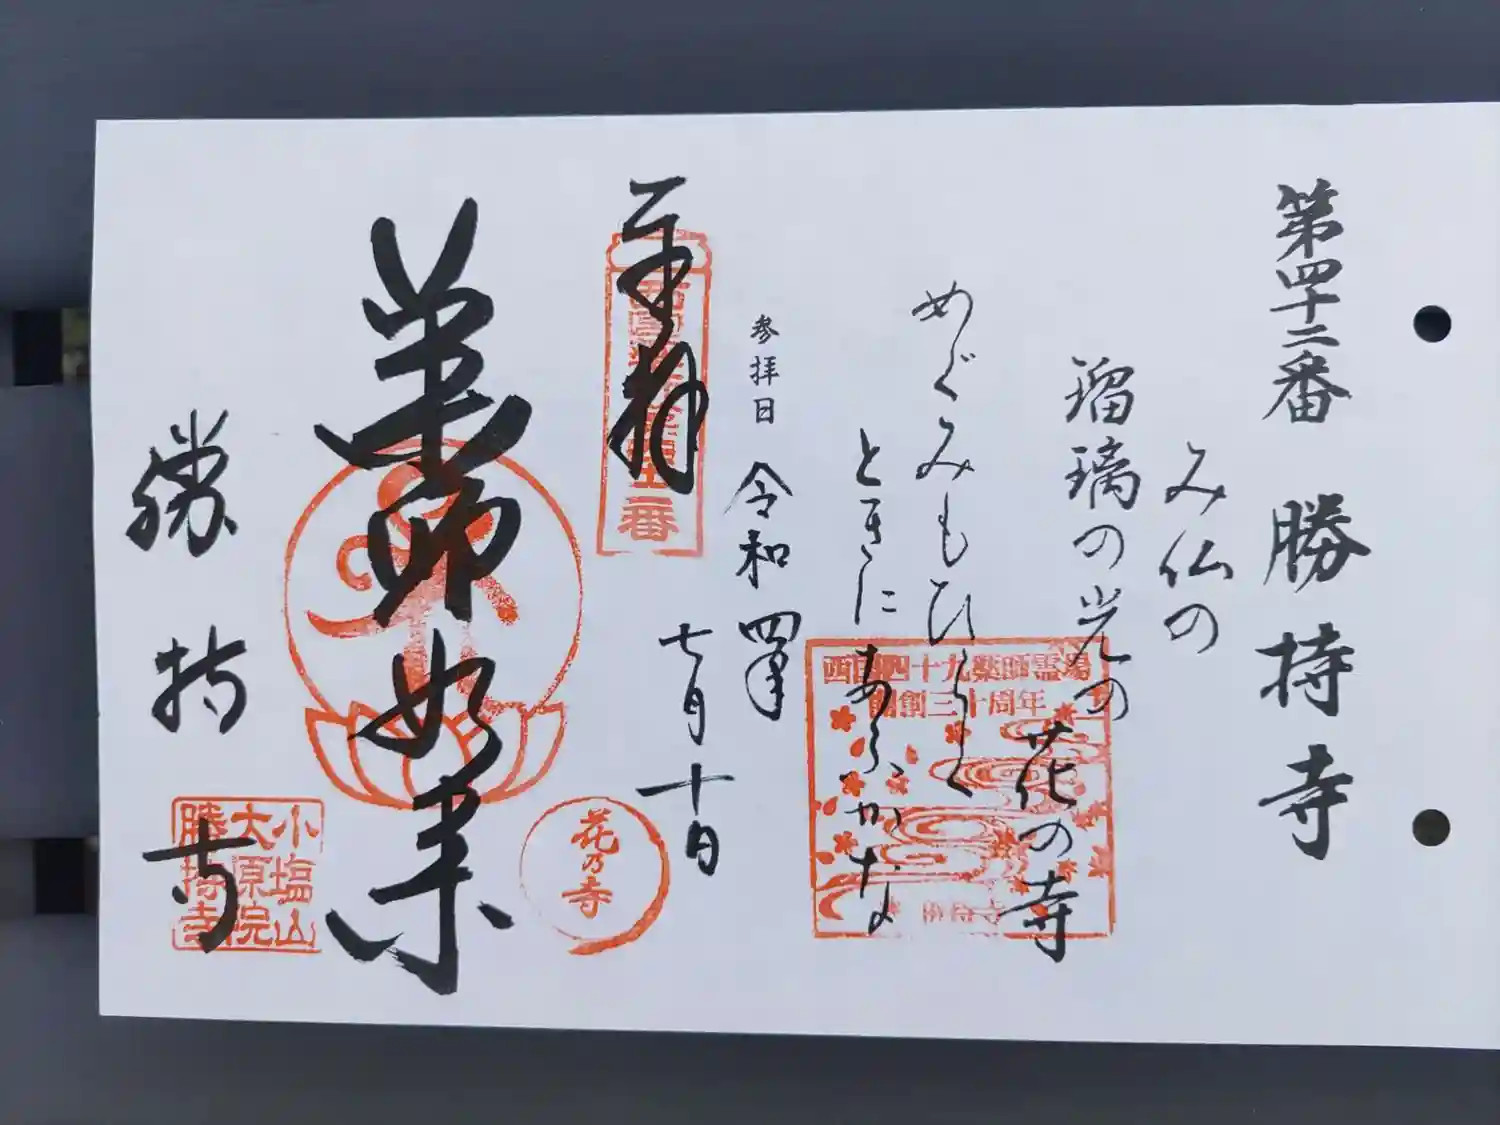 第四十二番 勝持寺
み仏の
瑠璃の光の
花の寺
めぐみもひらく
ときに
あらたかな
参拝日 令和四年
七月十日
奉拝
西国薬師霊場第四十二番
西国四十九薬師霊場
開創三十周年
勝持寺
薬師如来
花乃寺
勝持寺
小塩山
大原院
勝持寺